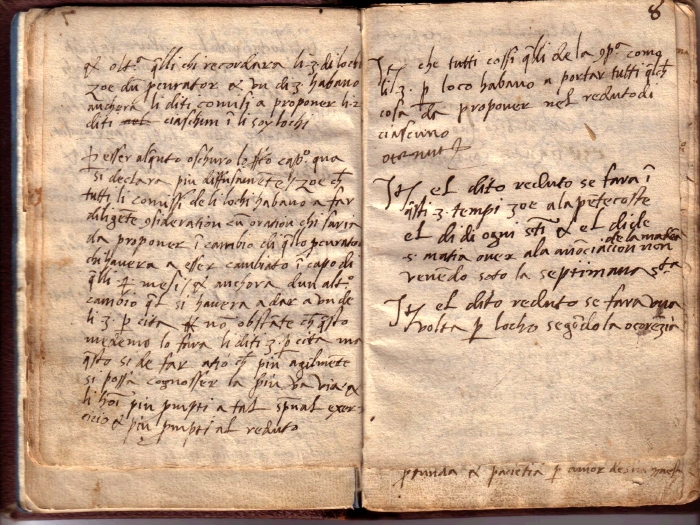 & olt.º q̃lli chi recordara li .3. di lochi
zoe dũ pcurator & un di .3. habano
anchora li diti comissi a proponer li .3.
diti ciaschun ĩ li soy lochi
esser alq̃uto oschuro lo sco cap.º qua
si declara piu diffusamẽte zoe ch̃
tutti li comiss̃ de li lochi habano a far
diligẽte 9sideration cũ oration chi saria
da proponer ĩ cambio di q̃llo pcurator
chi havera a esser cambiato ĩ capo di
q̃lli mesi & anchora dun alt.º
cambio q̃ si havera a dar a un de
li .3. p̱ cita nõ obstãte ch̃ q̃sto
medemo lo fara li diti .3. p̱ cita ma
q̃sto si de far atiò ch̃ più agilmẽte
si possa cognosser la piu via &
li hõi piu pmpti a tal spũal exer-
cicio & piu pmpti al reduto
8
Itẽ che tutti cossi q̃lli de la 9p.ª como
li .3. p̱ loco habano a portar tutti q̃lch̃
cosa da proponer nel reduto di
ciascuno
Itẽ el dito reduto se fara ĩ
q̃sti .3. tempi zoe a la petecoste
el di di ogni stĩ & el di de
s. matia over a la anõciacion de la madõna non
venẽdo soto la septimana s.ta
Itẽ el dito reduto se fara una
volta p̱ locho segõdo la ocorẽzia
& paciẽtia p̱ amor de